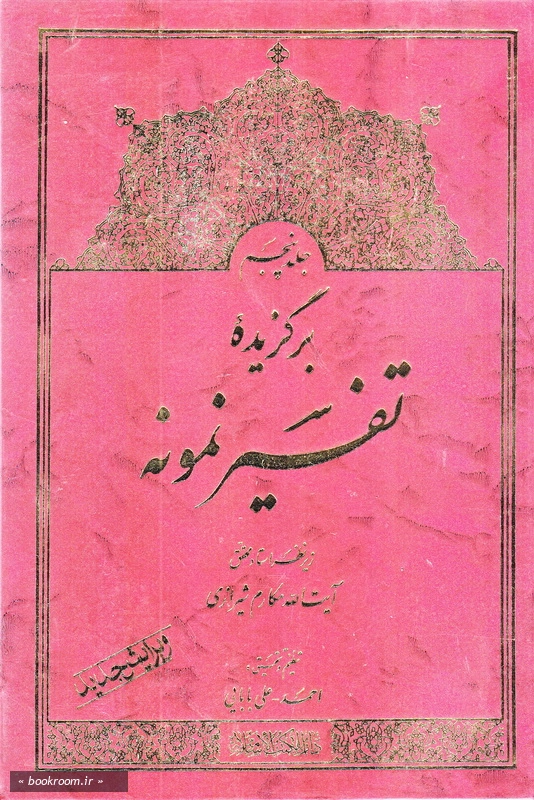 جلد پنجم
برگزیدهٔ
تفسیر نمونه
زیر نظر استاد محقق
آیت الله مکارم شیرازی
تنظیم و تحقیق:
احمد-علی بابائی
ویرایش جدید
دارالکتب الاسلامیه
« bookroom.ir »